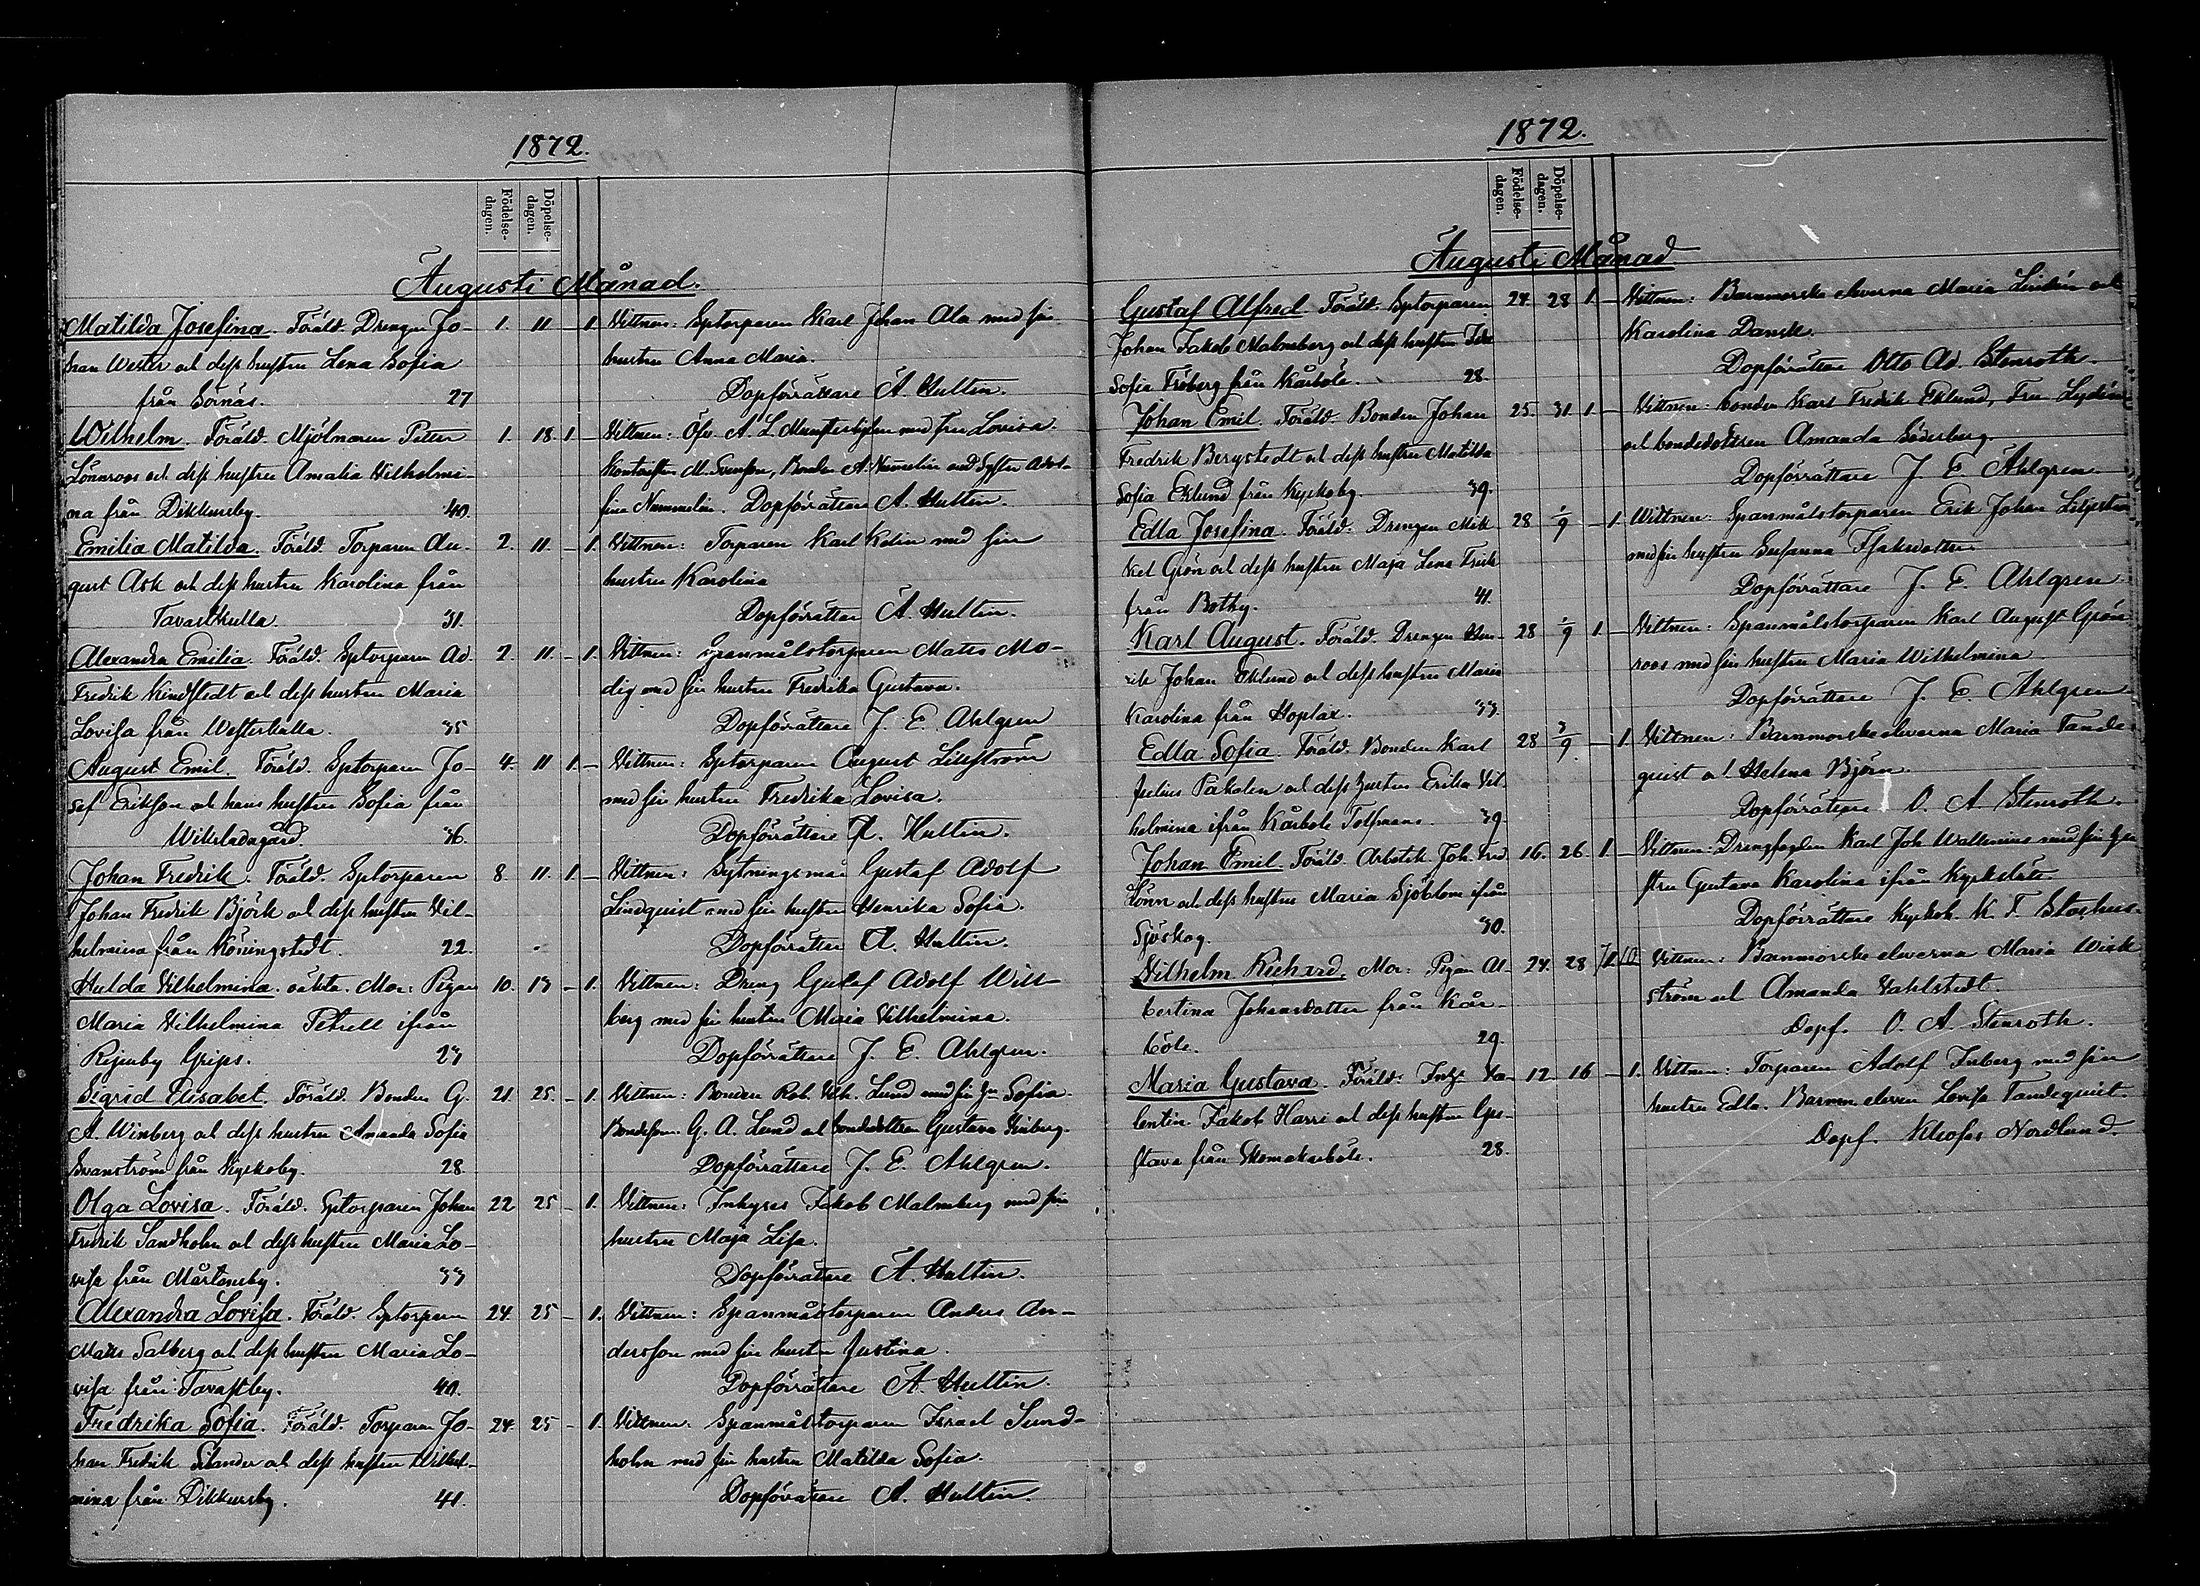 1872.
Födelse-dagen. Döpelse-dagen.
Augusti Månad.
Matilda Josefina. Föräld. Drengen Jo- 1. 11 - 1. Vittnen: Sptorparen Karl Johan Ala med sin
han Wester och dess hustru Lena Sofia hustru Anna Maria.
från Sörnäs. 27 Dopförrättare A. Hultin.
Wilhelm. Föräld. Mjölnaren Petter 1. 18. 1. - Vittnen: Öfv. A. L. Munsterhjelm med fru Lovisa
Lönnroos och dess hustru Amalia Wilhelmi-
na från Dikkursby. 40. Dopförrättare A. Hultin.
Emilia Matilda. Föräld. Torparen Au- 2. 11. - 1. Vittnen: Torparen Karl Kolin med sin
gust Ask och dess hustru Karolina från hustru Karolina
Tavastkulla. 31. Dopförrättare A. Hultin.
Alexandra Emilia. Föräld. Sptorparen Ad 2. 11. - 1. Vittnen: Spanmålstorparen Mats Mo-
Fredrik Kindstedt och dess hustru Maria dig med sin hustru Fredrika Gustava.
Lovisa från Westerkulla. 35 Dopförrättare J. E. Ahlgren
August Emil. Föräld. Sptorparen Jo- 4. 11 1. - Vittnen: Sptorparen August Liljström
sef Erikson och hans hustru Sofia från med sin hustru Fredrika Lovisa.
36. Dopförrättare A. Hultin.
Johan Fredrik. Föräld. Sptorparen 8. 11. 1. - Vittnen: Sytningsman Gustaf Adolf
Johan Fredrik Björk och dess hustru Vil- Lindquist med sin hustru Henrika Sofia.
helmina från Köningstedt. 22. Dopförrättare A. Hultin.
Hulda Vilhelmina. oäkta. Mor: Pigan 10. 13 - 1. Vittnen: Dreng Gustaf Adolf Will-
Maria Vilhelmina Petrell ifrån berg med sin hustru Maria Vilhelmina.
Grips. 23 Dopförrättare J. E. Ahlgren.
Sigrid Elisabet. Föräld. Bonden G. 21. 25. - 1. Vittnen: Bonden Rob. Vilh. Lund med sin Sofia
A. Winberg och dess hustru Amanda Sofia Bondeson. G. A. Lund och bondedottren Gustava
Svanström från Kyrkoby. 28. Dopförrättare J. E. Ahlgren.
Olga Lovisa. Föräld. Sptorparen Johan 22 25 - 1. Vittnen: Inhyses Jakob Malmberg med sin
Fredrik Sandholm och dess hustru Maria Lo- hustru Maja Lisa.
visa från Mårtensby. 33 Dopförrättare A. Hultin.
Alexandra Lovisa. Föräld. Sptorparen 24. 25 - 1. Vittnen: Spanmålstorparen Anders An-
Matts Salberg och dess hustru Maria Lo- dersson med sin hustru Justina.
visa från Tavastby. 40. Dopförrättare A. Hultin.
Fredrika Sofia. Föräld. Torparen Jo- 24. 25 - 1. Vittnen: Spanmålstorparen Israel Sund-
han Fredrik Silander och dess hustru Wilhel- holm med sin hustru Matilda Sofia.
mina från Dikkursby. 41. Dopförrättare A. Hultin.
1872.
Födelse-dagen. Döpelse-dagen.
Augusti Månad
Gustaf Alfred. Föräld. Sptorparen 24. 28 1. - Vittnen: Barnmorske eleverna Maria Lindén och
Johan Jakob Malmberg och dess hustru Ida Karolina Dansk.
Sofia Fröberg från Kårböle. 28. Dopförrättare Otto Ad. Stenroth.
Johan Emil. Föräld. Bonden Johan 25. 31. 1. - Vittnen: bonden Karl Fredrik Eklund,
Fredrik Bergstedt och dess hustru Matilda och bondedottren Amanda Söderberg.
Sofia Eklund från Kyrkoby. 39. Dopförrättare J. E. Ahlgren
Edla Josefina. Föräld: Drengen Mik 28 1/9 - 1. Vittnen: Spanmålstorparen Erik Johan
kel Grön och dess hustru Maja Lena Frisk med sin hustru Susanna Isaksdotter
från Botby. 41. Dopförrättare J. E. Ahlgren
Karl August. Föräld. Drengen Hen- 28 1/9 1. - Vittnen: Spanmålstorparen Karl August Grön
rik Johan Eklund och dess hustru Maria roos med sin hustru Maria Wilhelmina
Karolina från Hoplax. 33. Dopförrättare J. E. Ahlgren
Edla Sofia. Föräld. Bonden Karl 28 3/9. - 1. Vittnen: Barnmorskeeleverna Maria Tande-
Julius och dess hustru Erika Vil- quist och Helena Björn.
helmina ifrån Kårböle Tolfmans. 39 Dopförrättare O. A. Stenroth.
Johan Emil. Föräld. Arbetsk. Joh. Fred 16. 26 1. - Vittnen: Drengfogden Karl Joh Wallenius med sin hu
Lönn och dess hustru Maria Sjöblom ifrån stru Gustava Karolina ifrån Kyrkslätt
Sjöskog. 30. Dopförrättare Kyrkoh. K. F.
Vilhelm Richard. Mor: Pigan Al- 24. 28 Vittnen: Barnmorske eleverna Maria Wik
bertina Johansdotter från Kår- ström och Amanda Vahlstedt
böle. 29. Dopf. O. A. Stenroth.
Maria Gustava. Föräld. Inhys. Va- 12 16 - 1. Vittnen: Torparen Adolf Inberg med sin
lentin Jakob Harri och dess hustru Gu- hustru Edla. Barnm. eleven Lovisa Tandequist.
stava från 28. Dopf. Kleofas Nordlund.